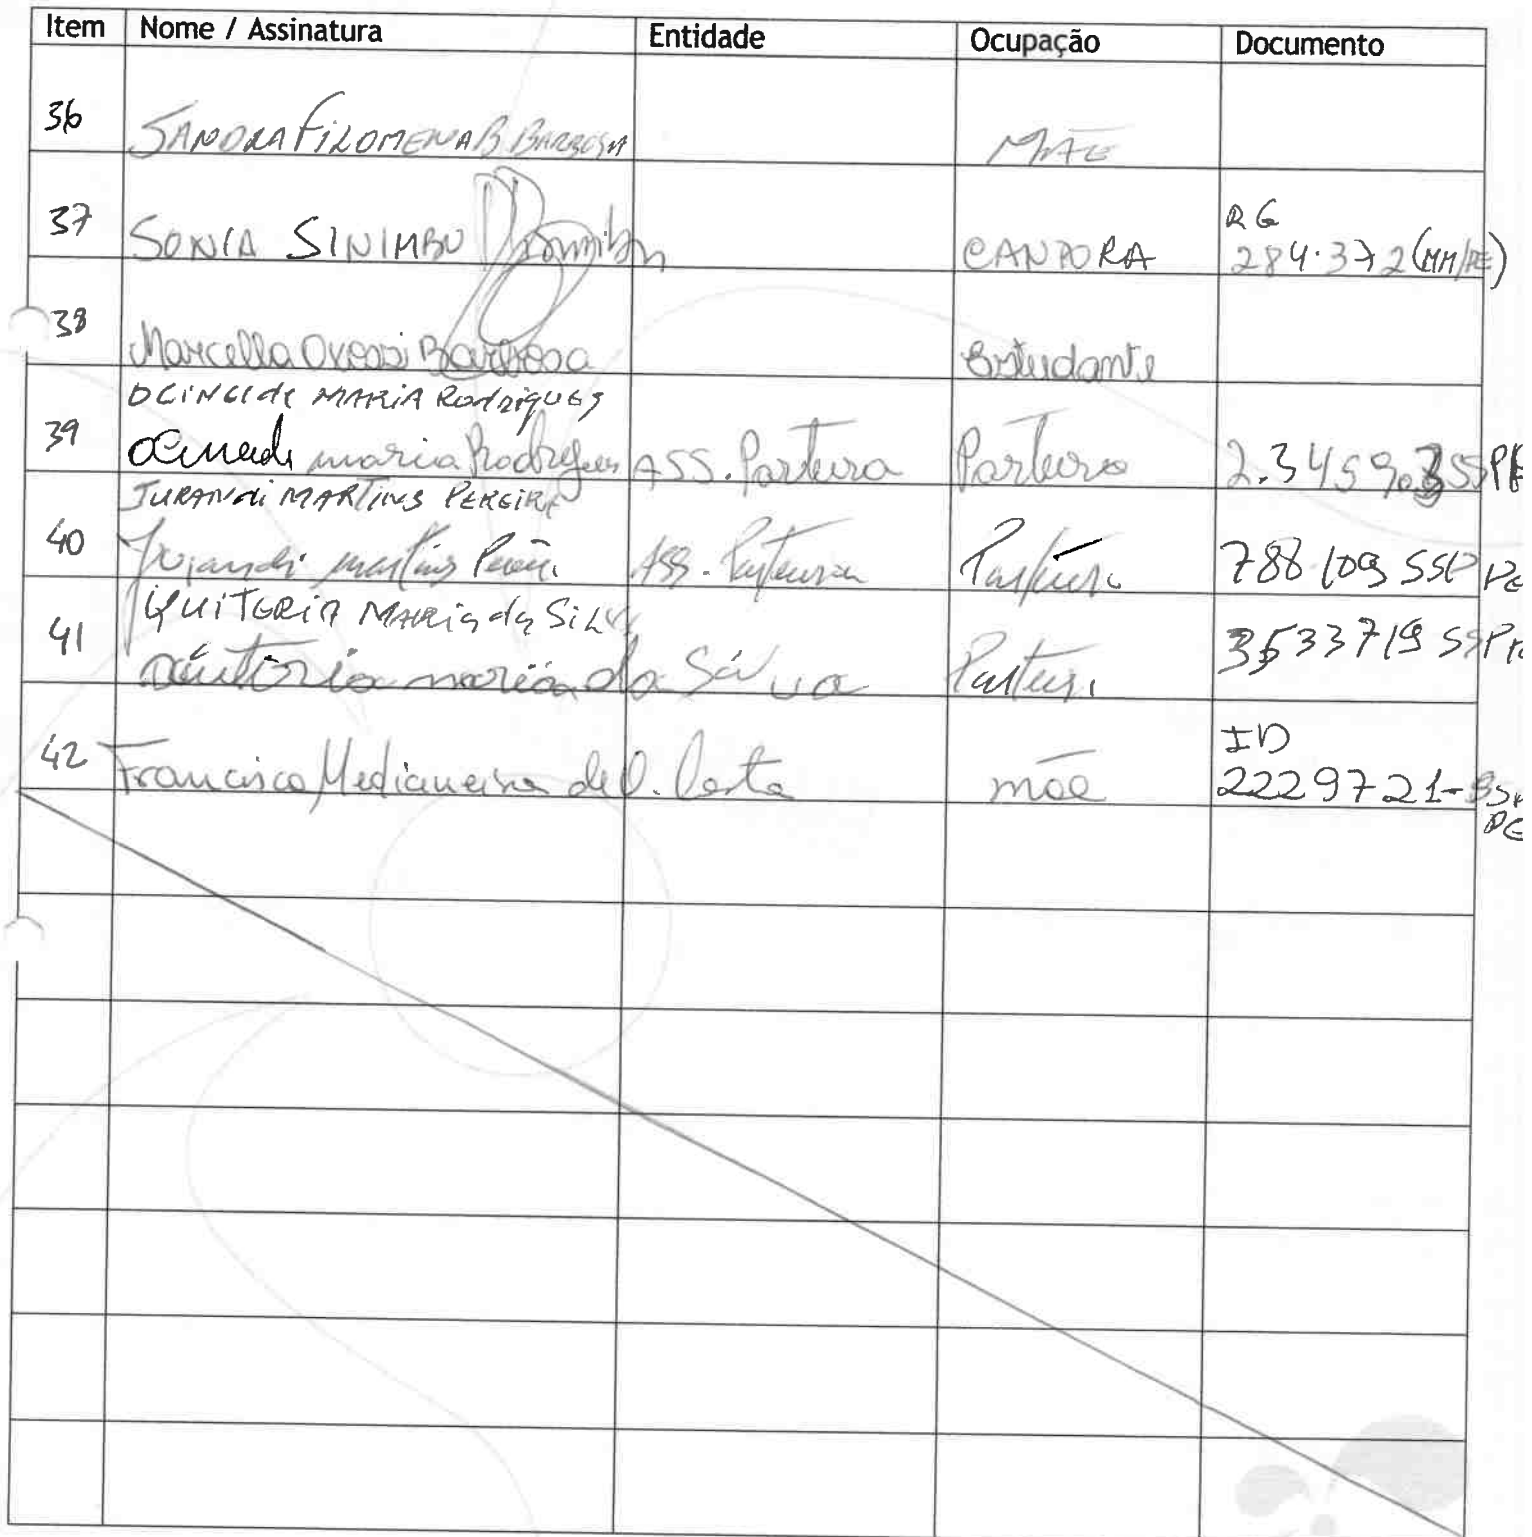 Item Nome / Assinatura Entidade Ocupação Documento
36 SANDRA FILOMENA B. BARBOSA MÃE
37 SONIA SINIMBU CANTORA RG
284.372 (MM/PE)
38 Marcella Barbosa Estudante
DCINEIDE MARIA RODRIGUES
39 maria Rodrigues ASS. Parteira Parteira 2.3459 SSPPE
JURANDI MARTINS PEREIRA
40 Jurandi martins Ass. Parteira 788109 SSP PE
QUITERIA MARIA da SiLVA
41 maria da Silva 3533719 SSP PE
42 Francisca Medianeira de O. Costa mãe ID
2229721-SSP
PE